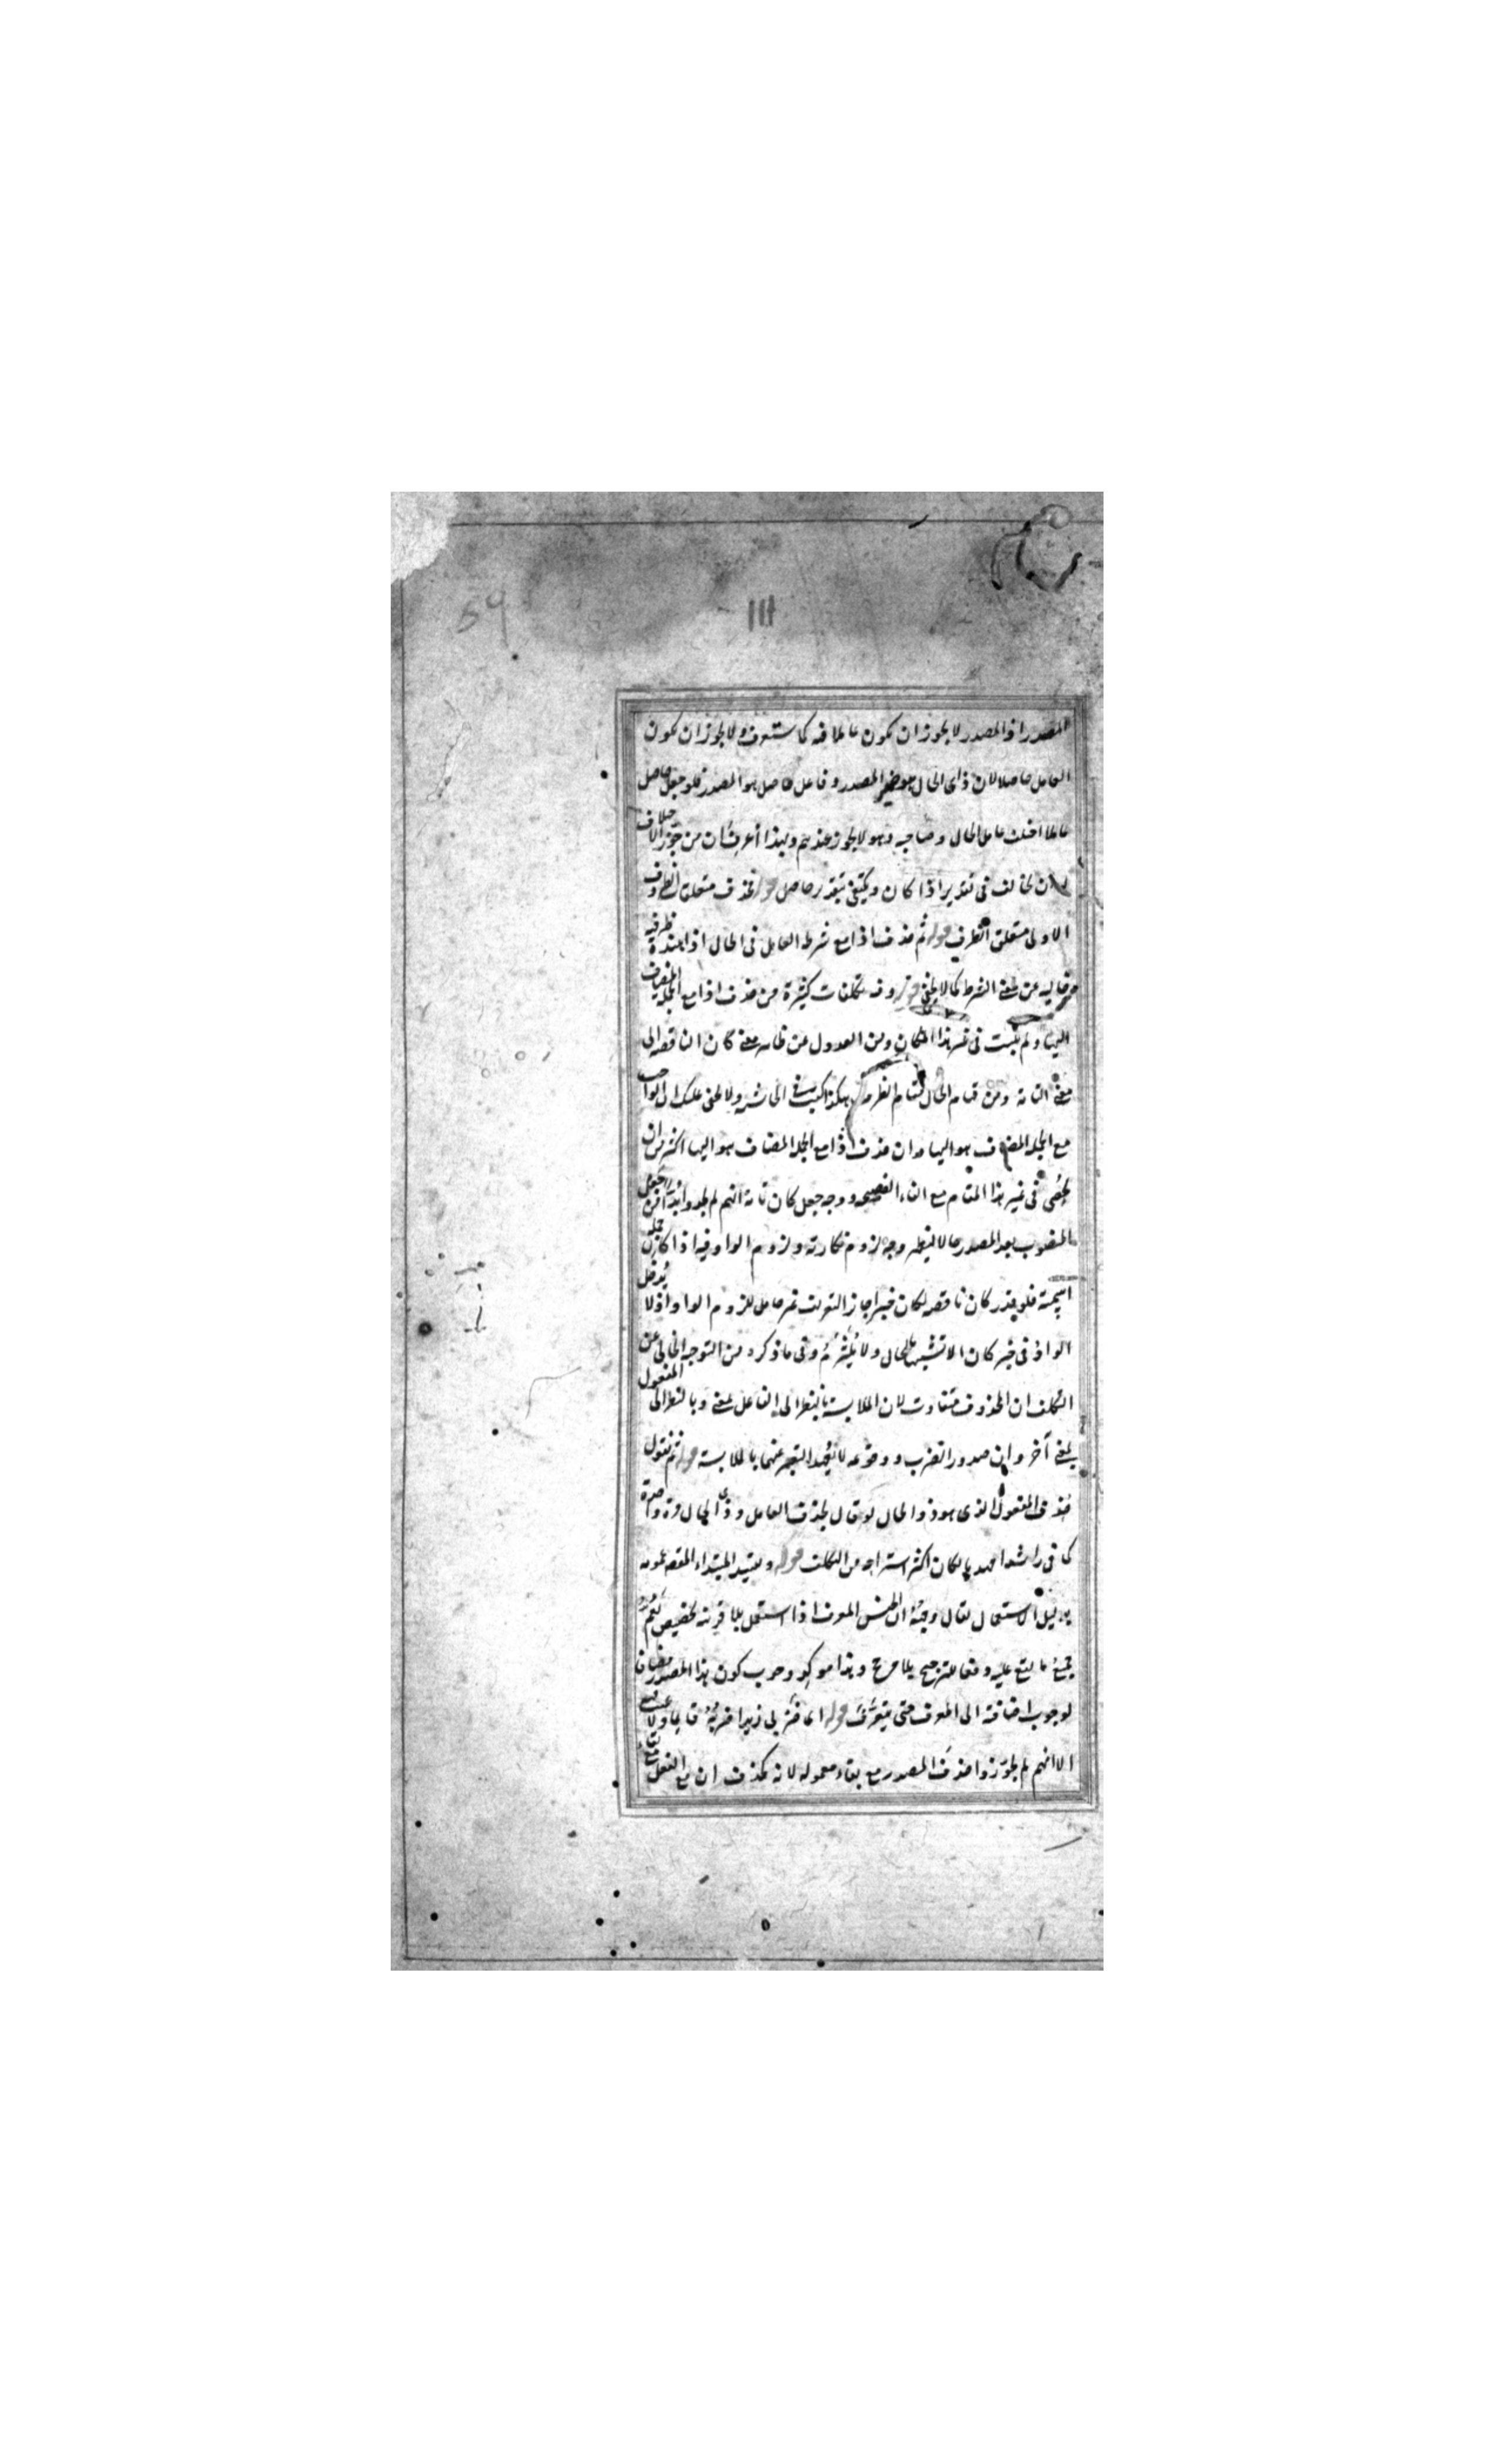 59
111
المصدر اذ المصدر لا يجوز ان يكون عاملا فيه كما ستعرفه ولا يجوز ان يكون
العامل حاصلا لان ذى الحال هو ضمير المصدر وفاعل حاصل هو المصدر فلو جعل حاصل
عاملا اختلف عامل الحال وصاحبه وهو لا يجوز عندهم وبهذا أعرف ان من جوز الاختلاف
ان يخالف فى تقدير اذا كان ويكتفى بتقدير حاصل قوله فحذف متعلق الظروف
الاولى متعلق الظرف قوله ثم حذف اذا مع شرط العامل فى الحال اذا عنده ظرفية
خالية عن معنى الشرط كما لا يخفى قوله وفيه تكلفات كثيرة من حذف اذا مع الجملة المضاف
اليها ولم يثبت فى غير هذا المكان ومن العدول عن ظاهر معنى كان الناقصة الى
معنى التامة ومن قيام الحال مقام الظرف هكذا كتب فى الحاشية ولا يخفى عليك ان الواجب
مع الجملة المضاف هو اليها وان حذف اذا مع الجملة المضاف هو اليها اكثر من ان
يحصى فى غير هذا المقام مع الفاء الفصيحة ووجه جعل كان تامة انهم لم يجدوا بدا من جعل
المنصوب بعد المصدر حالا لينظر وجه لزوم نكارته ولزوم الواو فيه اذا كان جملة
اسمية فلو يقدر كان ناقصة لكان خبرا جاز التعريف غير حامل للزوم الواو اذ لا يدخل
الواو فى خبر كان الا تشبيها بالحال ولا يلتزم وفى ما ذكره من التوجيه الخالى عن
التكلف ان المحذوف متفاوت لان الملابسة بالنظر الى الفاعل بمعنى وبالنظر الى المفعول
بمعنى آخر وان صدور الضرب ووقوعه لا يجد التعبير عنهما بالملابسة قوله ثم نقول
حذف المفعول الذى هو ذو الحال لو قال بحذف العامل وذى الحال مرة واحدة
كما فى راشدا مهديا لكان اكثر استراحة من التكلف قوله وتقييد المبتداء المقصود عمومه
بدليل الاستعمال يقال وفيه ان الجنس المعرف اذا استعمل بلا قرينة تخصيص يعم
جميع ما يقع عليه دفعا للترجيح بلا مرجح وهذا موكد وجوب كون هذا المصدر مضافا
لوجوب اضافته الى المعرف حتى يتعرف قوله اى ضربى زيدا ضربه قايما
الا انهم لم يجوزوا حذف المصدر مع بقاء معموله لانه كحذف ان مع الفعل